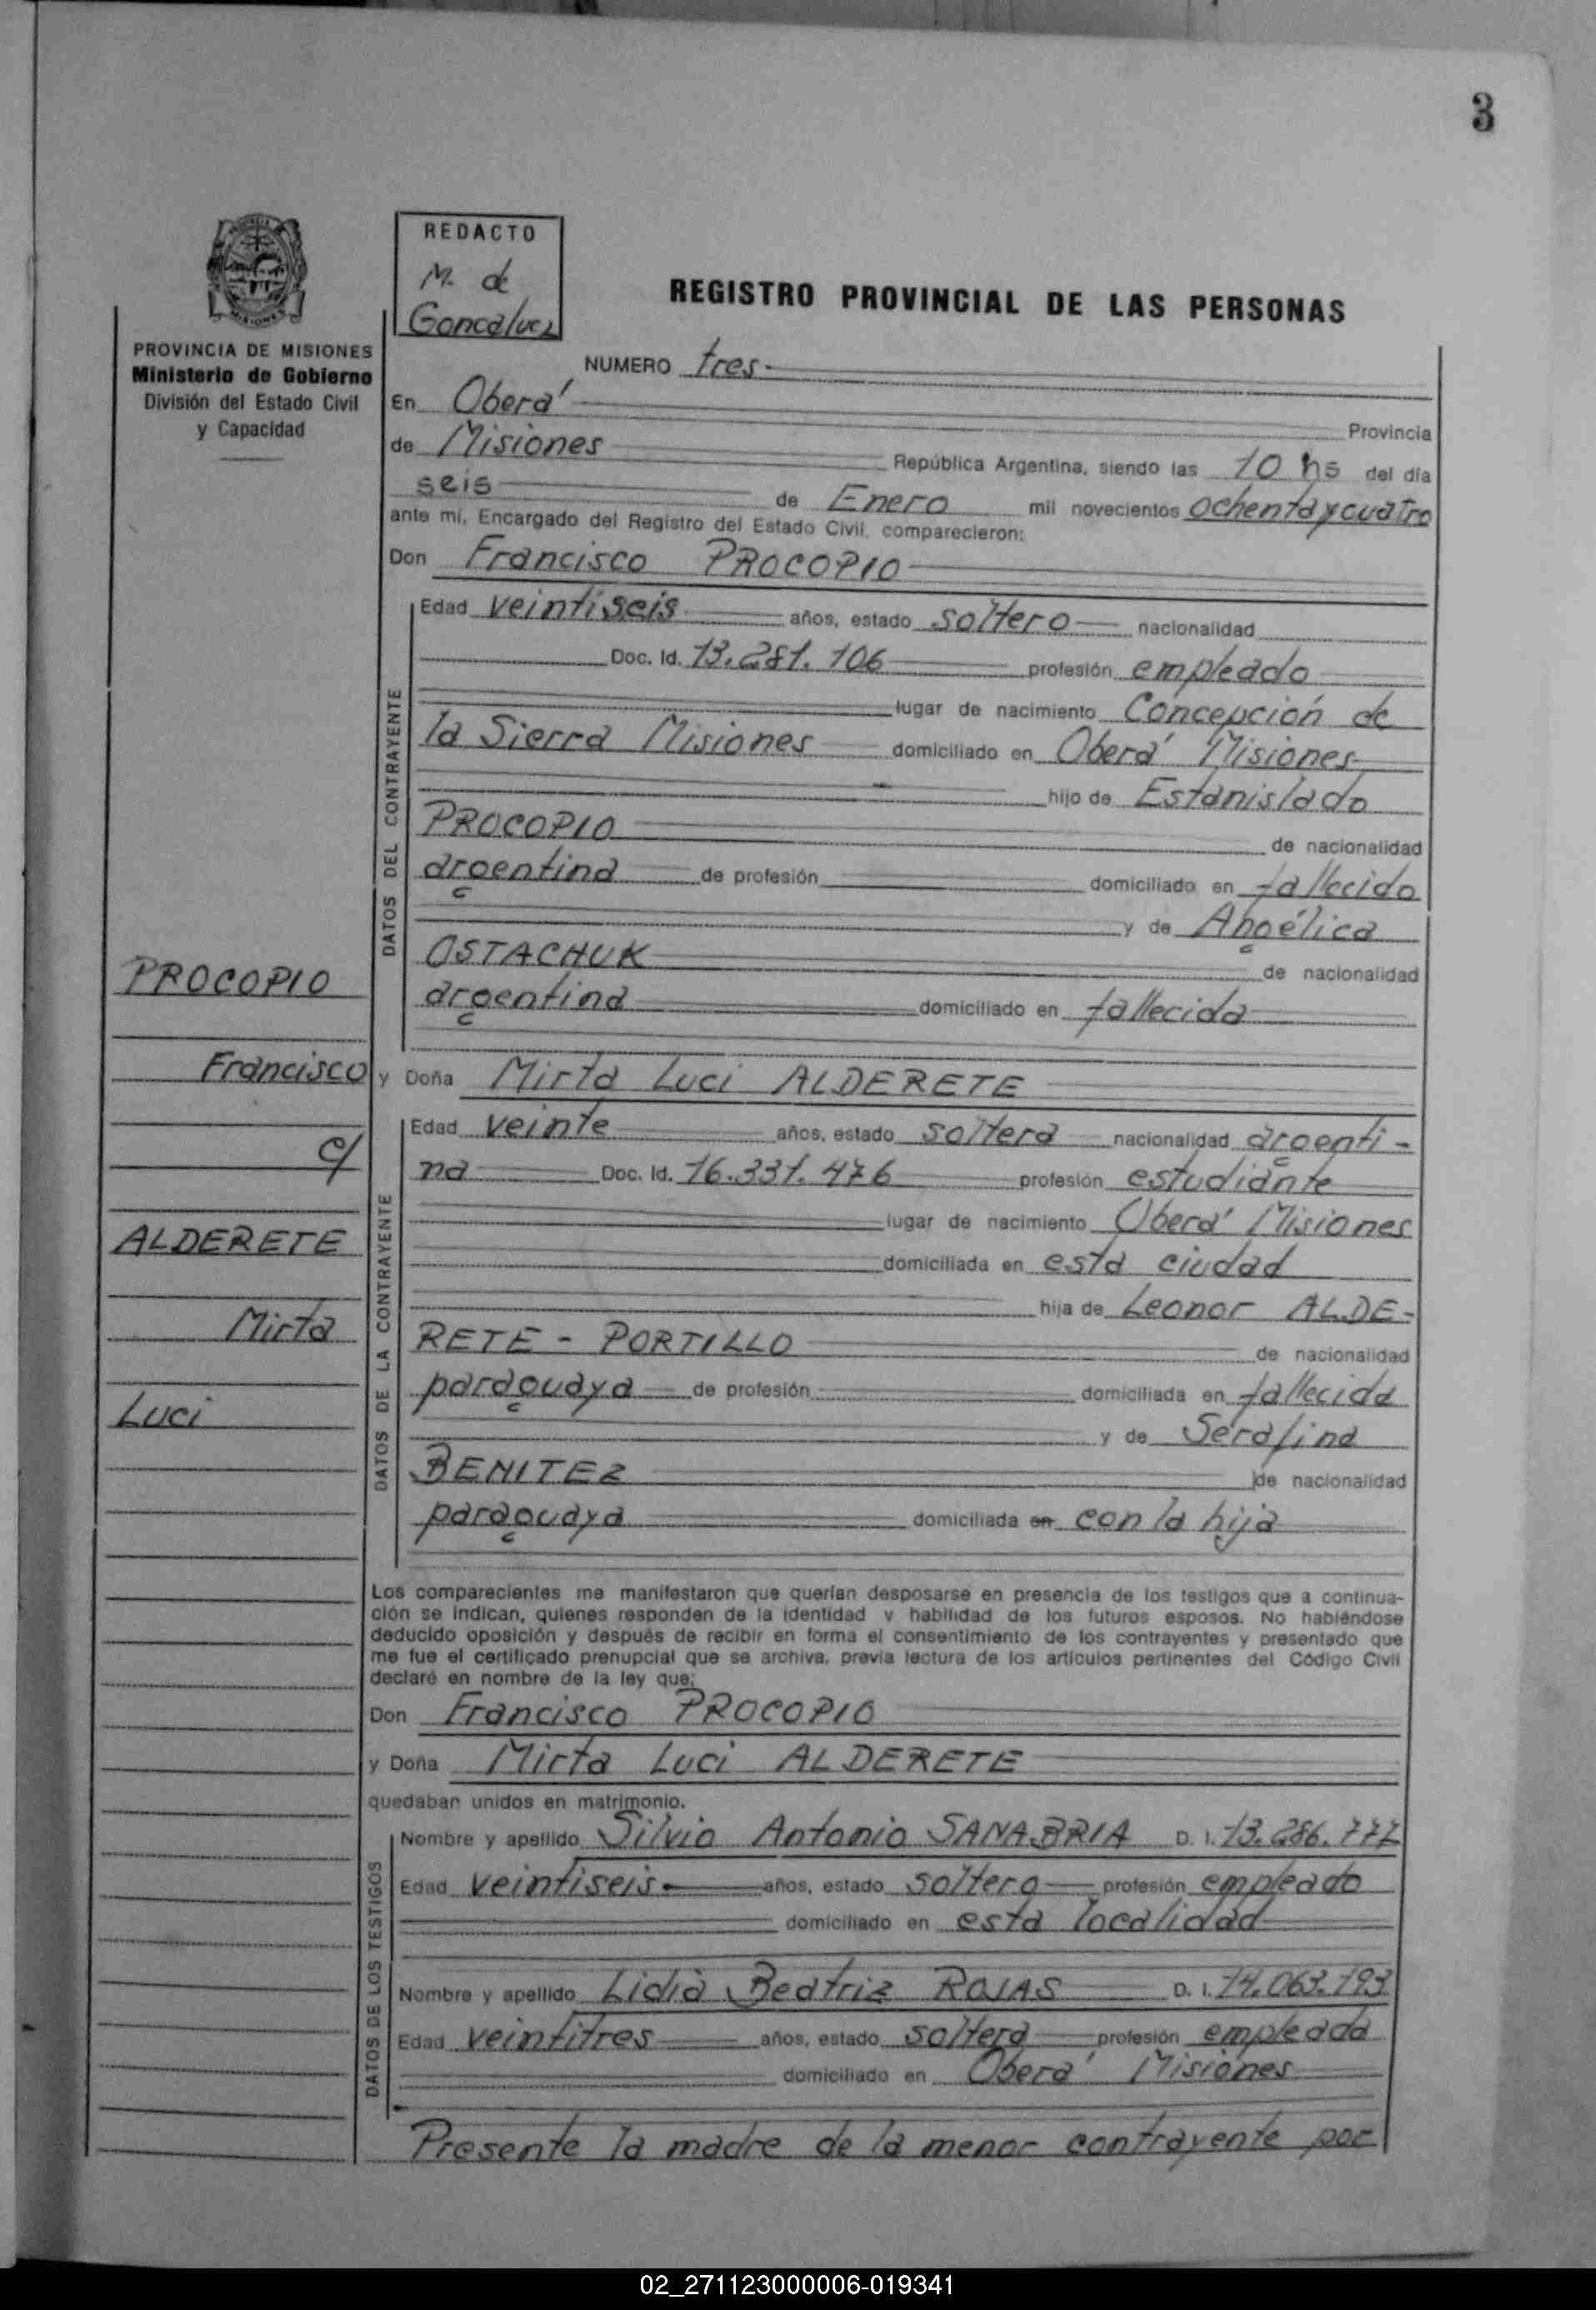 3
REDACTO
M. de
Goncalvez
REGISTRO PROVINCIAL DE LAS PERSONAS
PROVINCIA DE MISIONES
Ministerio de Gobierno
División del Estado Civil
y Capacidad
NUMERO tres.
En Oberá
Provincia
de Misiones República Argentina, siendo las 10 hs del día
seis de Enero mil novecientos ochenta y cuatro
ante mí, Encargado del Registro del Estado Civil, comparecieron:
Don Francisco PROCOPIO
DATOS DEL CONTRAYENTE
Edad veintiseis años, estado soltero nacionalidad
Doc. Id. 13.281.106 profesión empleado
lugar de nacimiento Concepción de
la Sierra Misiones domiciliado en Oberá Misiones
hijo de Estanislado
PROCOPIO de nacionalidad
argentina de profesión domiciliado en fallecido
y de Angélica
OSTACHUK de nacionalidad
argentina domiciliado en fallecida
y Doña Mirta Luci ALDERETE
DATOS DE LA CONTRAYENTE
Edad veinte años, estado soltera nacionalidad argenti-
na Doc. Id. 16.331.476 profesión estudiante
lugar de nacimiento Oberá Misiones
domiciliada en esta ciudad
hija de Leonor ALDE-
RETE - PORTILLO de nacionalidad
paraguaya de profesión domiciliada en fallecida
y de Serafina
BENITEZ de nacionalidad
paraguaya domiciliada en con la hija
PROCOPIO
Francisco
c/
ALDERETE
Mirta
Luci
Los comparecientes me manifestaron que querían desposarse en presencia de los testigos que a continua-
ción se indican, quienes responden de la identidad y habilidad de los futuros esposos. No habiéndose
deducido oposición y después de recibir en forma el consentimiento de los contrayentes y presentado que
me fue el certificado prenupcial que se archiva, previa lectura de los artículos pertinentes del Código Civil
declaré en nombre de la ley que:
Don Francisco PROCOPIO
y Doña Mirta Luci ALDERETE
quedaban unidos en matrimonio.
DATOS DE LOS TESTIGOS
Nombre y apellido Silvio Antonio SANABRIA D. I. 13.286.777
Edad veintiseis. años, estado soltero profesión empleado
domiciliado en esta localidad
Nombre y apellido Lidia Beatriz ROJAS D. I. 14.063.193
Edad veintitres años, estado soltera profesión empleada
domiciliado en Oberá Misiones
Presente la madre de la menor contrayente por
02_271123000006-019341